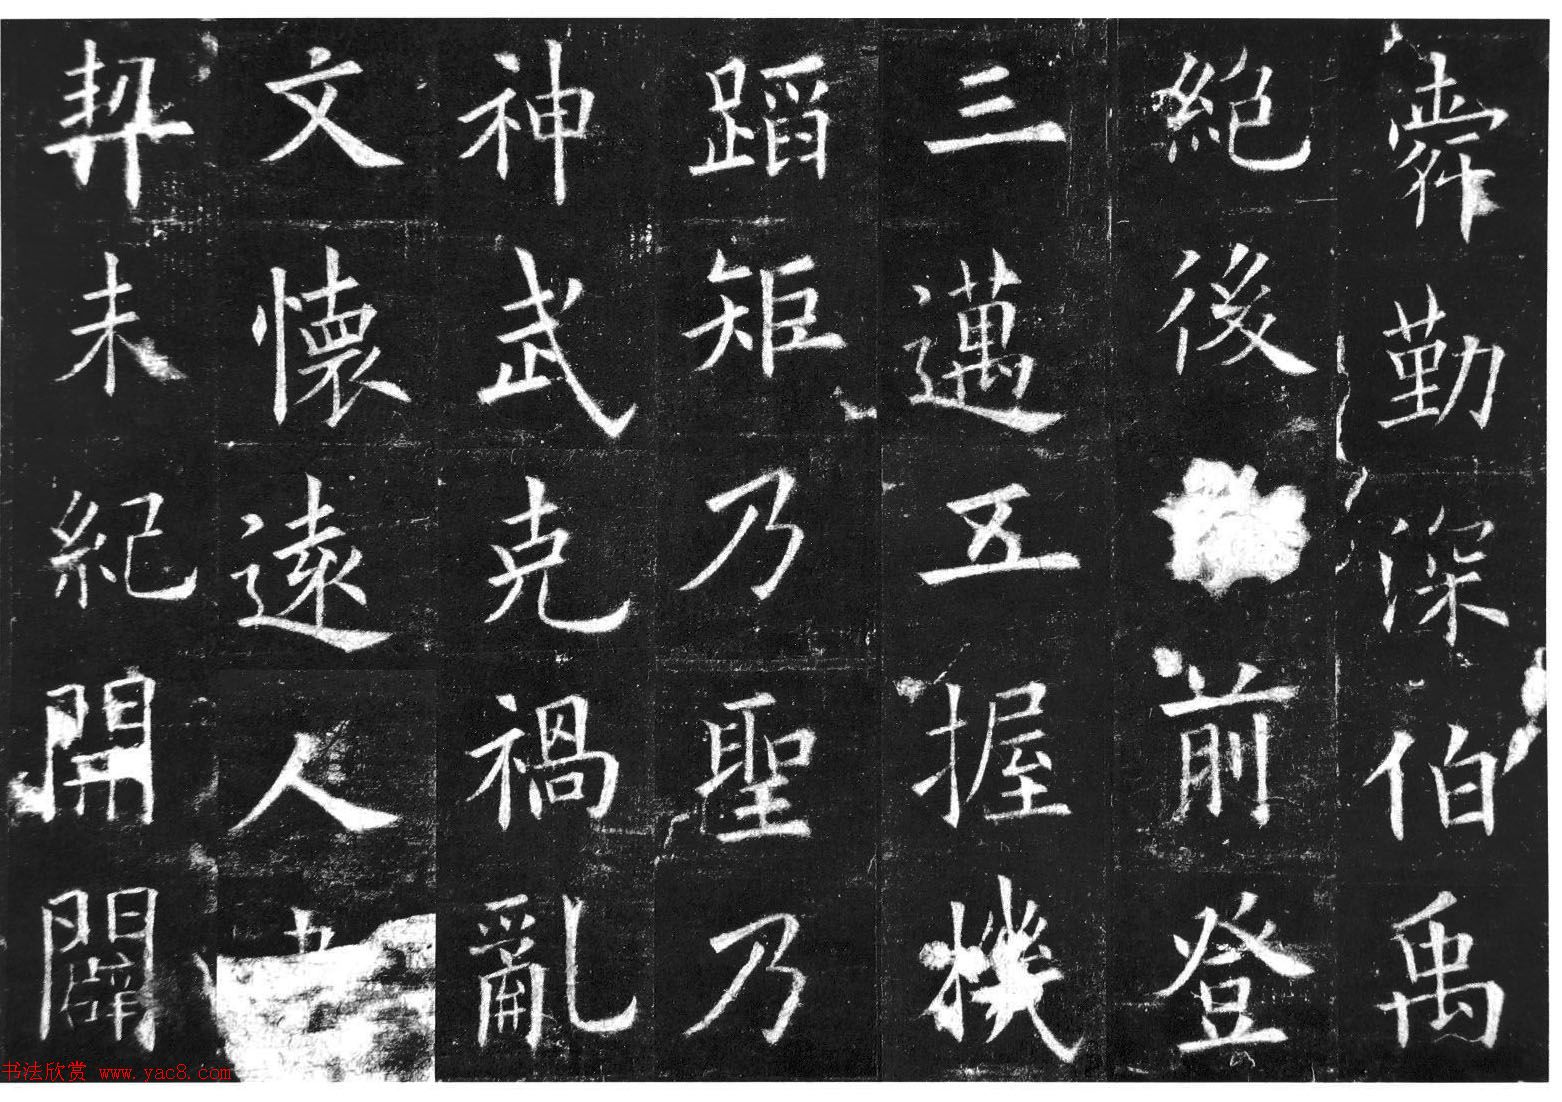 舜勤深伯禹
絶後前登
三邁五握機
蹈矩乃聖乃
神武克禍亂
文懷遠人
契未紀開闢
书法欣赏 www.yac8.com